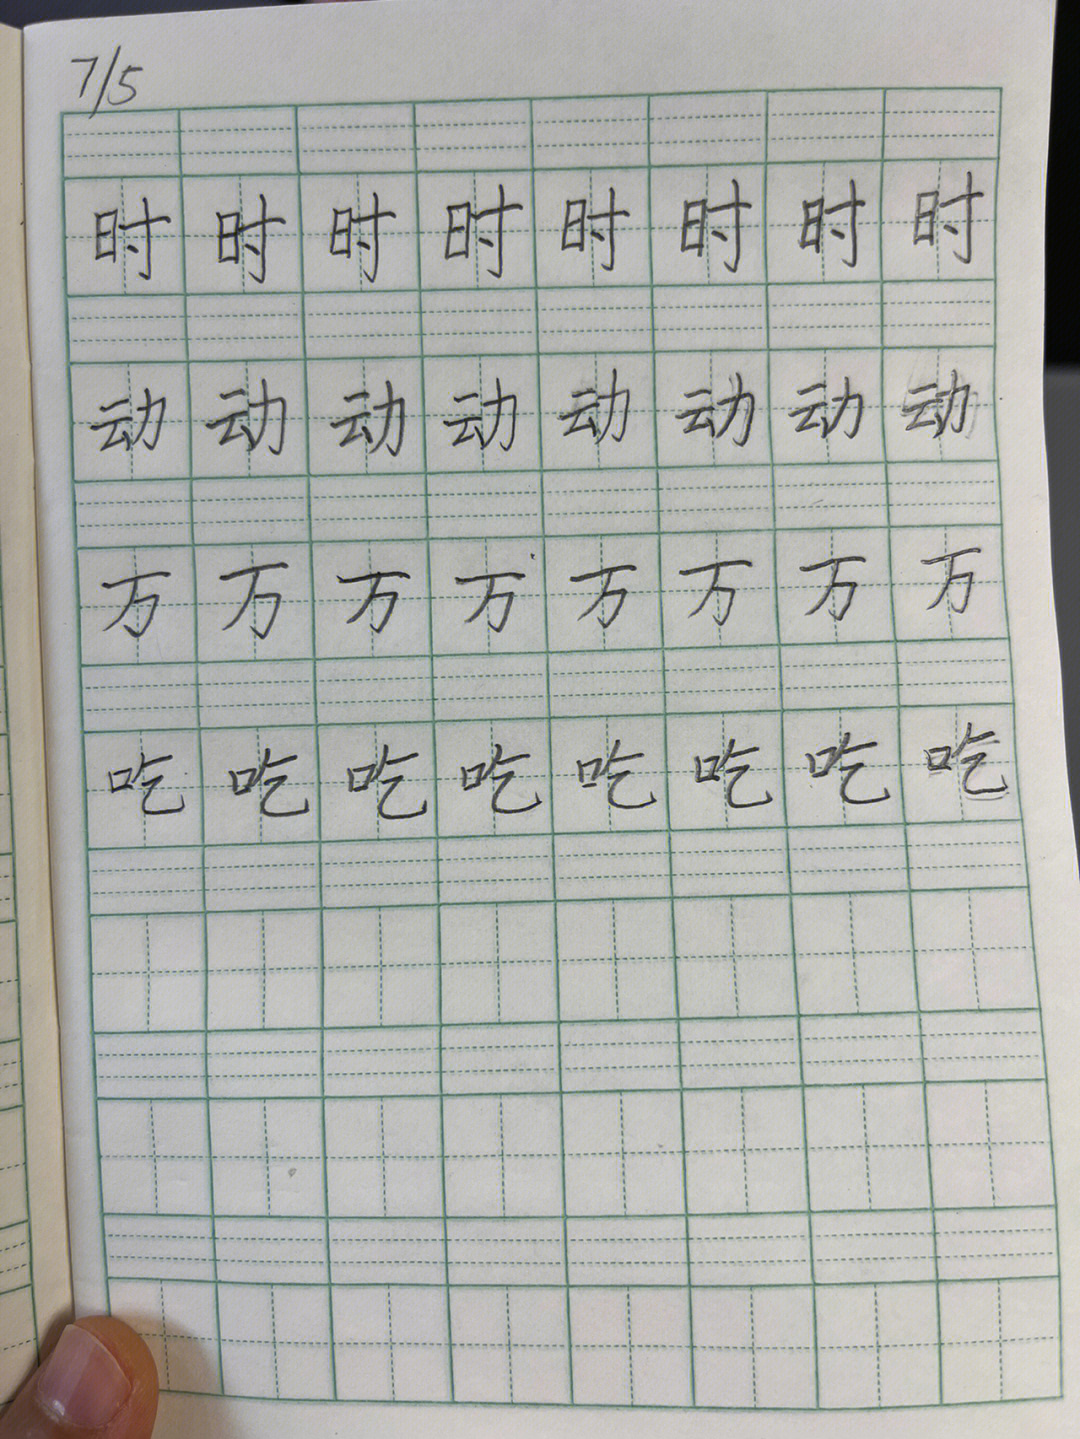 7/5
时 时 时 时 时 时 时 时
动 动 动 动 动 动 动 动
万 万 万 万 万 万 万 万
吃 吃 吃 吃 吃 吃 吃 吃